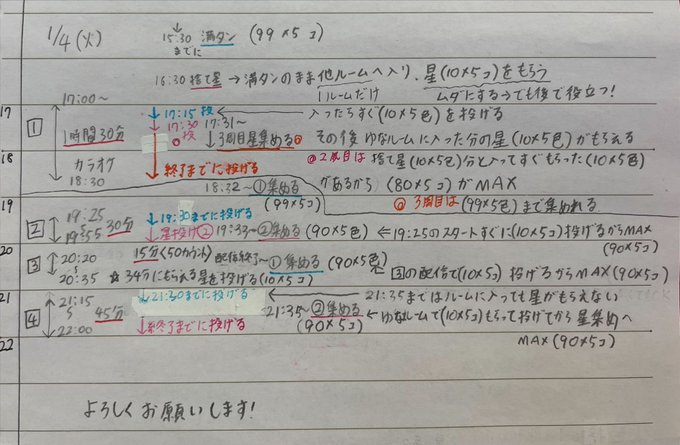 1/4(火)
↓
15:30 満タン (99×5コ)
までに
16:30 捨て星 → 満タンのまま他ルームへ入り、星(10×5コ)をもらう
1ルームだけ
ムダにする→でも後で役立つ!
17
17:00~
1
1時間30分
カラオケ
18:30
↓17:15 投 ← 入ったらすぐ(10×5色)を投げる
17:30 投
17:31~
↓3周目星集める
その後 ゆなルームに入った分の星(10×5色)がもらえる
18
終了までに投げる
◎2周目は 捨て星(10×5色)分と入ってすぐもらった(10×5色)
があるから (80×5コ)がMAX
18:32~①集める
(99×5コ)
◎3周目は(99×5色)まで集めれる
19
2
19:25
19:55
30分
↓19:30までに投げる
↓星投げ② 19:33~②集める (90×5色) ← 19:25のスタートすぐに(10×5コ)投げるからMAX
(90×5コ)
20
3
20:20
20:35
15分<50カウント> 配信終了~①集める (90×5色)
☆34分にもらえる星を投げる(10×5コ)
← 3の配信で(10×5コ)投げるからMAX(90×5コ)
21
4
21:15
22:00
45分
↓21:30までに投げる
← 21:35まではルームに入っても星がもらえない
↓終了までに投げる
21:35~②集める
(90×5コ)
← ゆなルームで(10×5コ)もらって投げてから星集めへ
MAX(90×5コ)
22
よろしくお願いします!